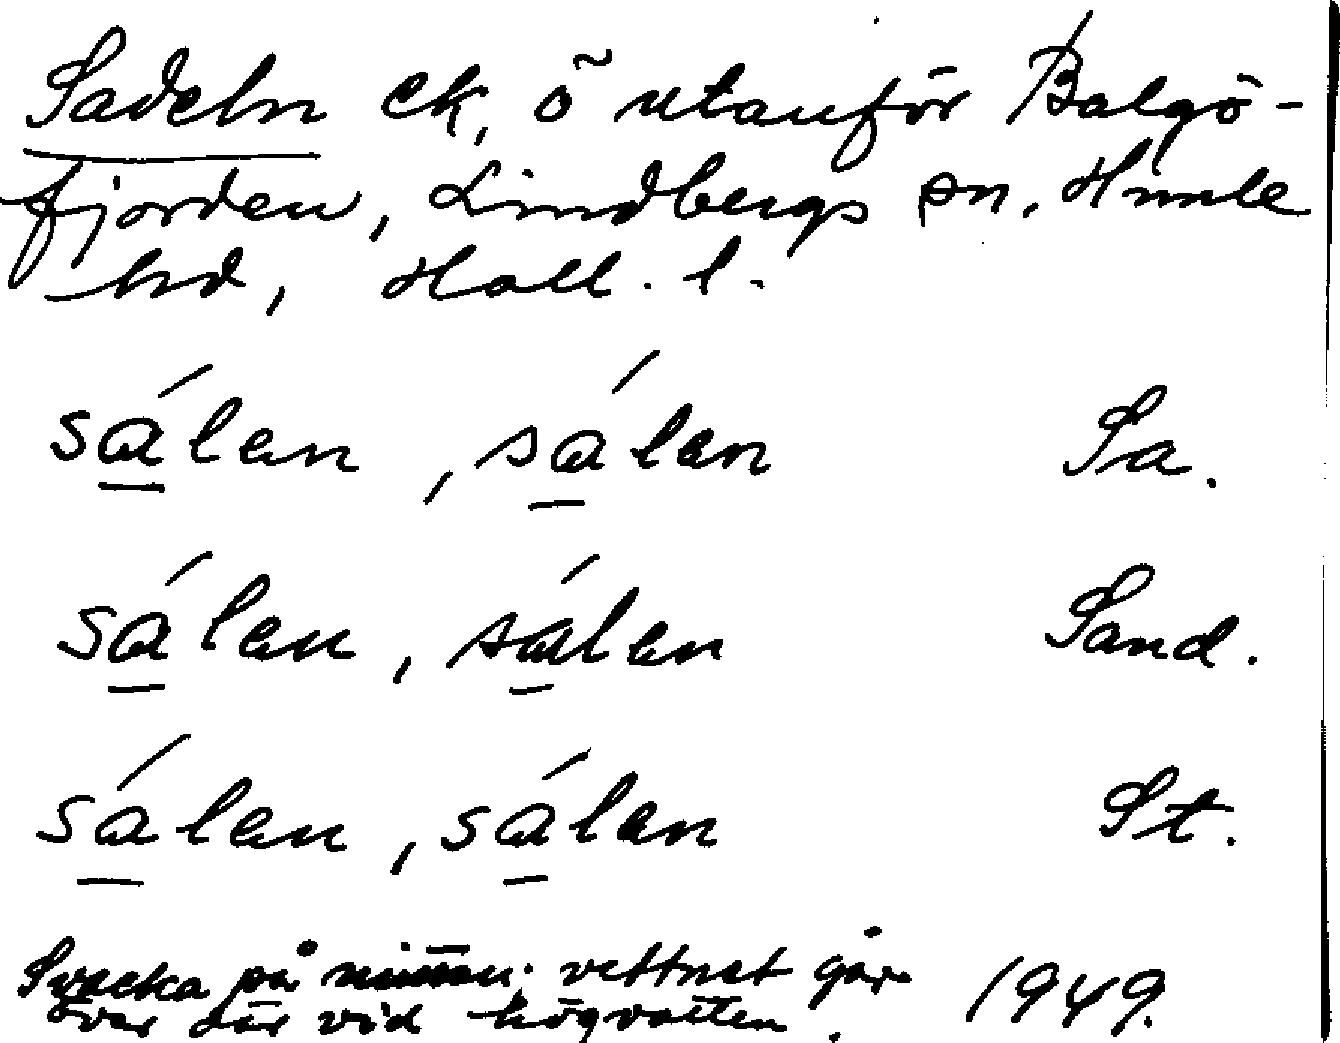 Sadeln ek, ö utanför Balgö-
fjorden, Lindbergs sn. Himle
hd, Hall. l.
sálen, sálen Sa.
sálen, sálen Sand.
sálen, sálen St.
Svacka på mitten; vettnet går
över där vid högvatten. 1949.